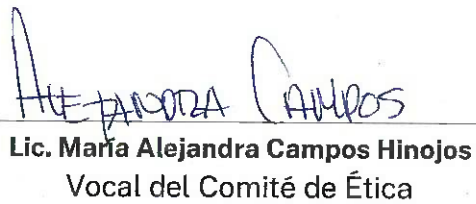 ALEJANDRA CAMPOS
Lic. María Alejandra Campos Hinojos
Vocal del Comité de Ética